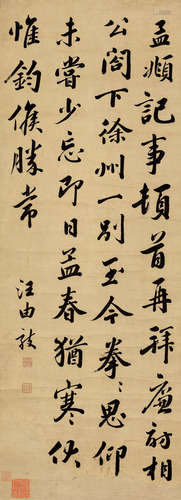 孟頫記事頓首再拜廉訪相
公閤下徐州一別至今拳拳思仰
未嘗少忘即日孟春猶寒伏
惟鈞候勝常
汪由敦